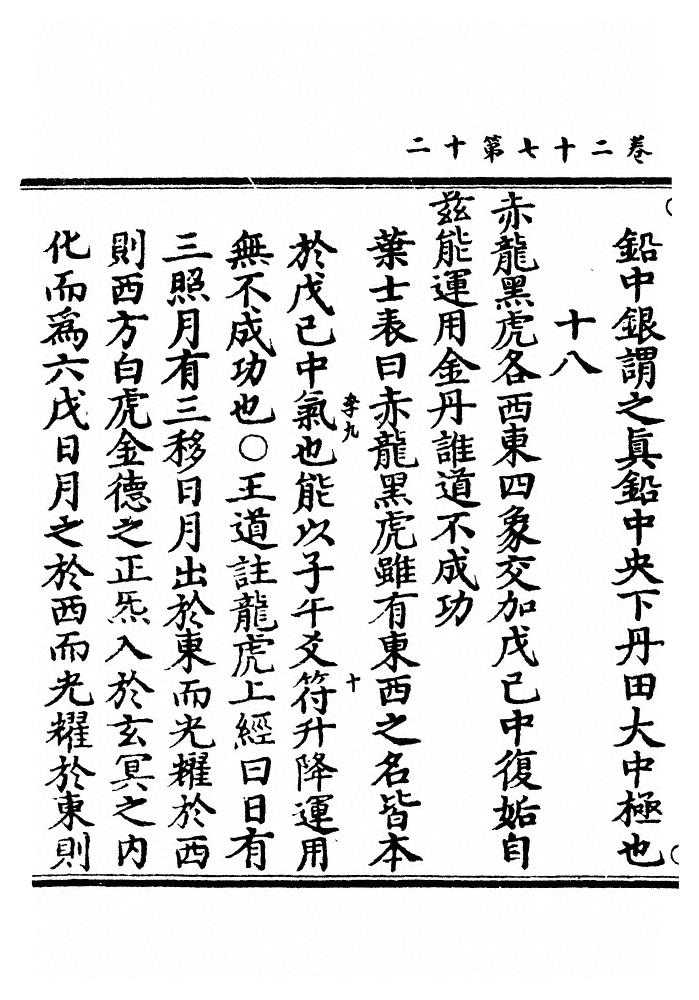 卷二十七第十二
鉛中銀謂之眞鉛中央下丹田大中極也
十八
赤龍黑虎各西東四象交加戊己中復姤自
兹能運用金丹誰道不成功
葉士表曰赤龍黑虎雖有東西之名皆本
李九
十
於戊己中氣也能以子午爻符升降運用
無不成功也○王道註龍虎上經曰日有
三照月有三移日月出於東而光耀於西
則西方白虎金德之正炁入於玄冥之内
化而爲六戊日月之於西而光耀於東則